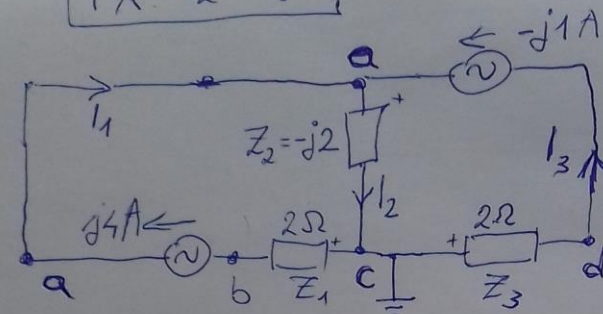 a
-j1 A
I1
Z2=-j2
+
I2
I3
j4A
2Ω
+
2Ω
+
a
b
Z1
c
Z3
d